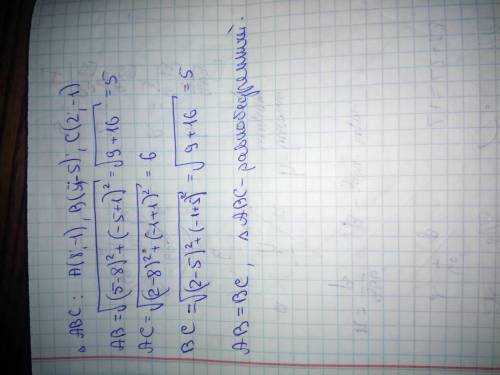 △ ABC: A(8;-1), B(5;-5), C(2;-1)
AB = √(5-8)²+(-5+1)² = √9+16 = 5
AC = √(2-8)²+(-1+1)² = 6
BC = √(2-5)²+(-1+5)² = √9+16 = 5
AB = BC, △ ABC - равнобедренный.